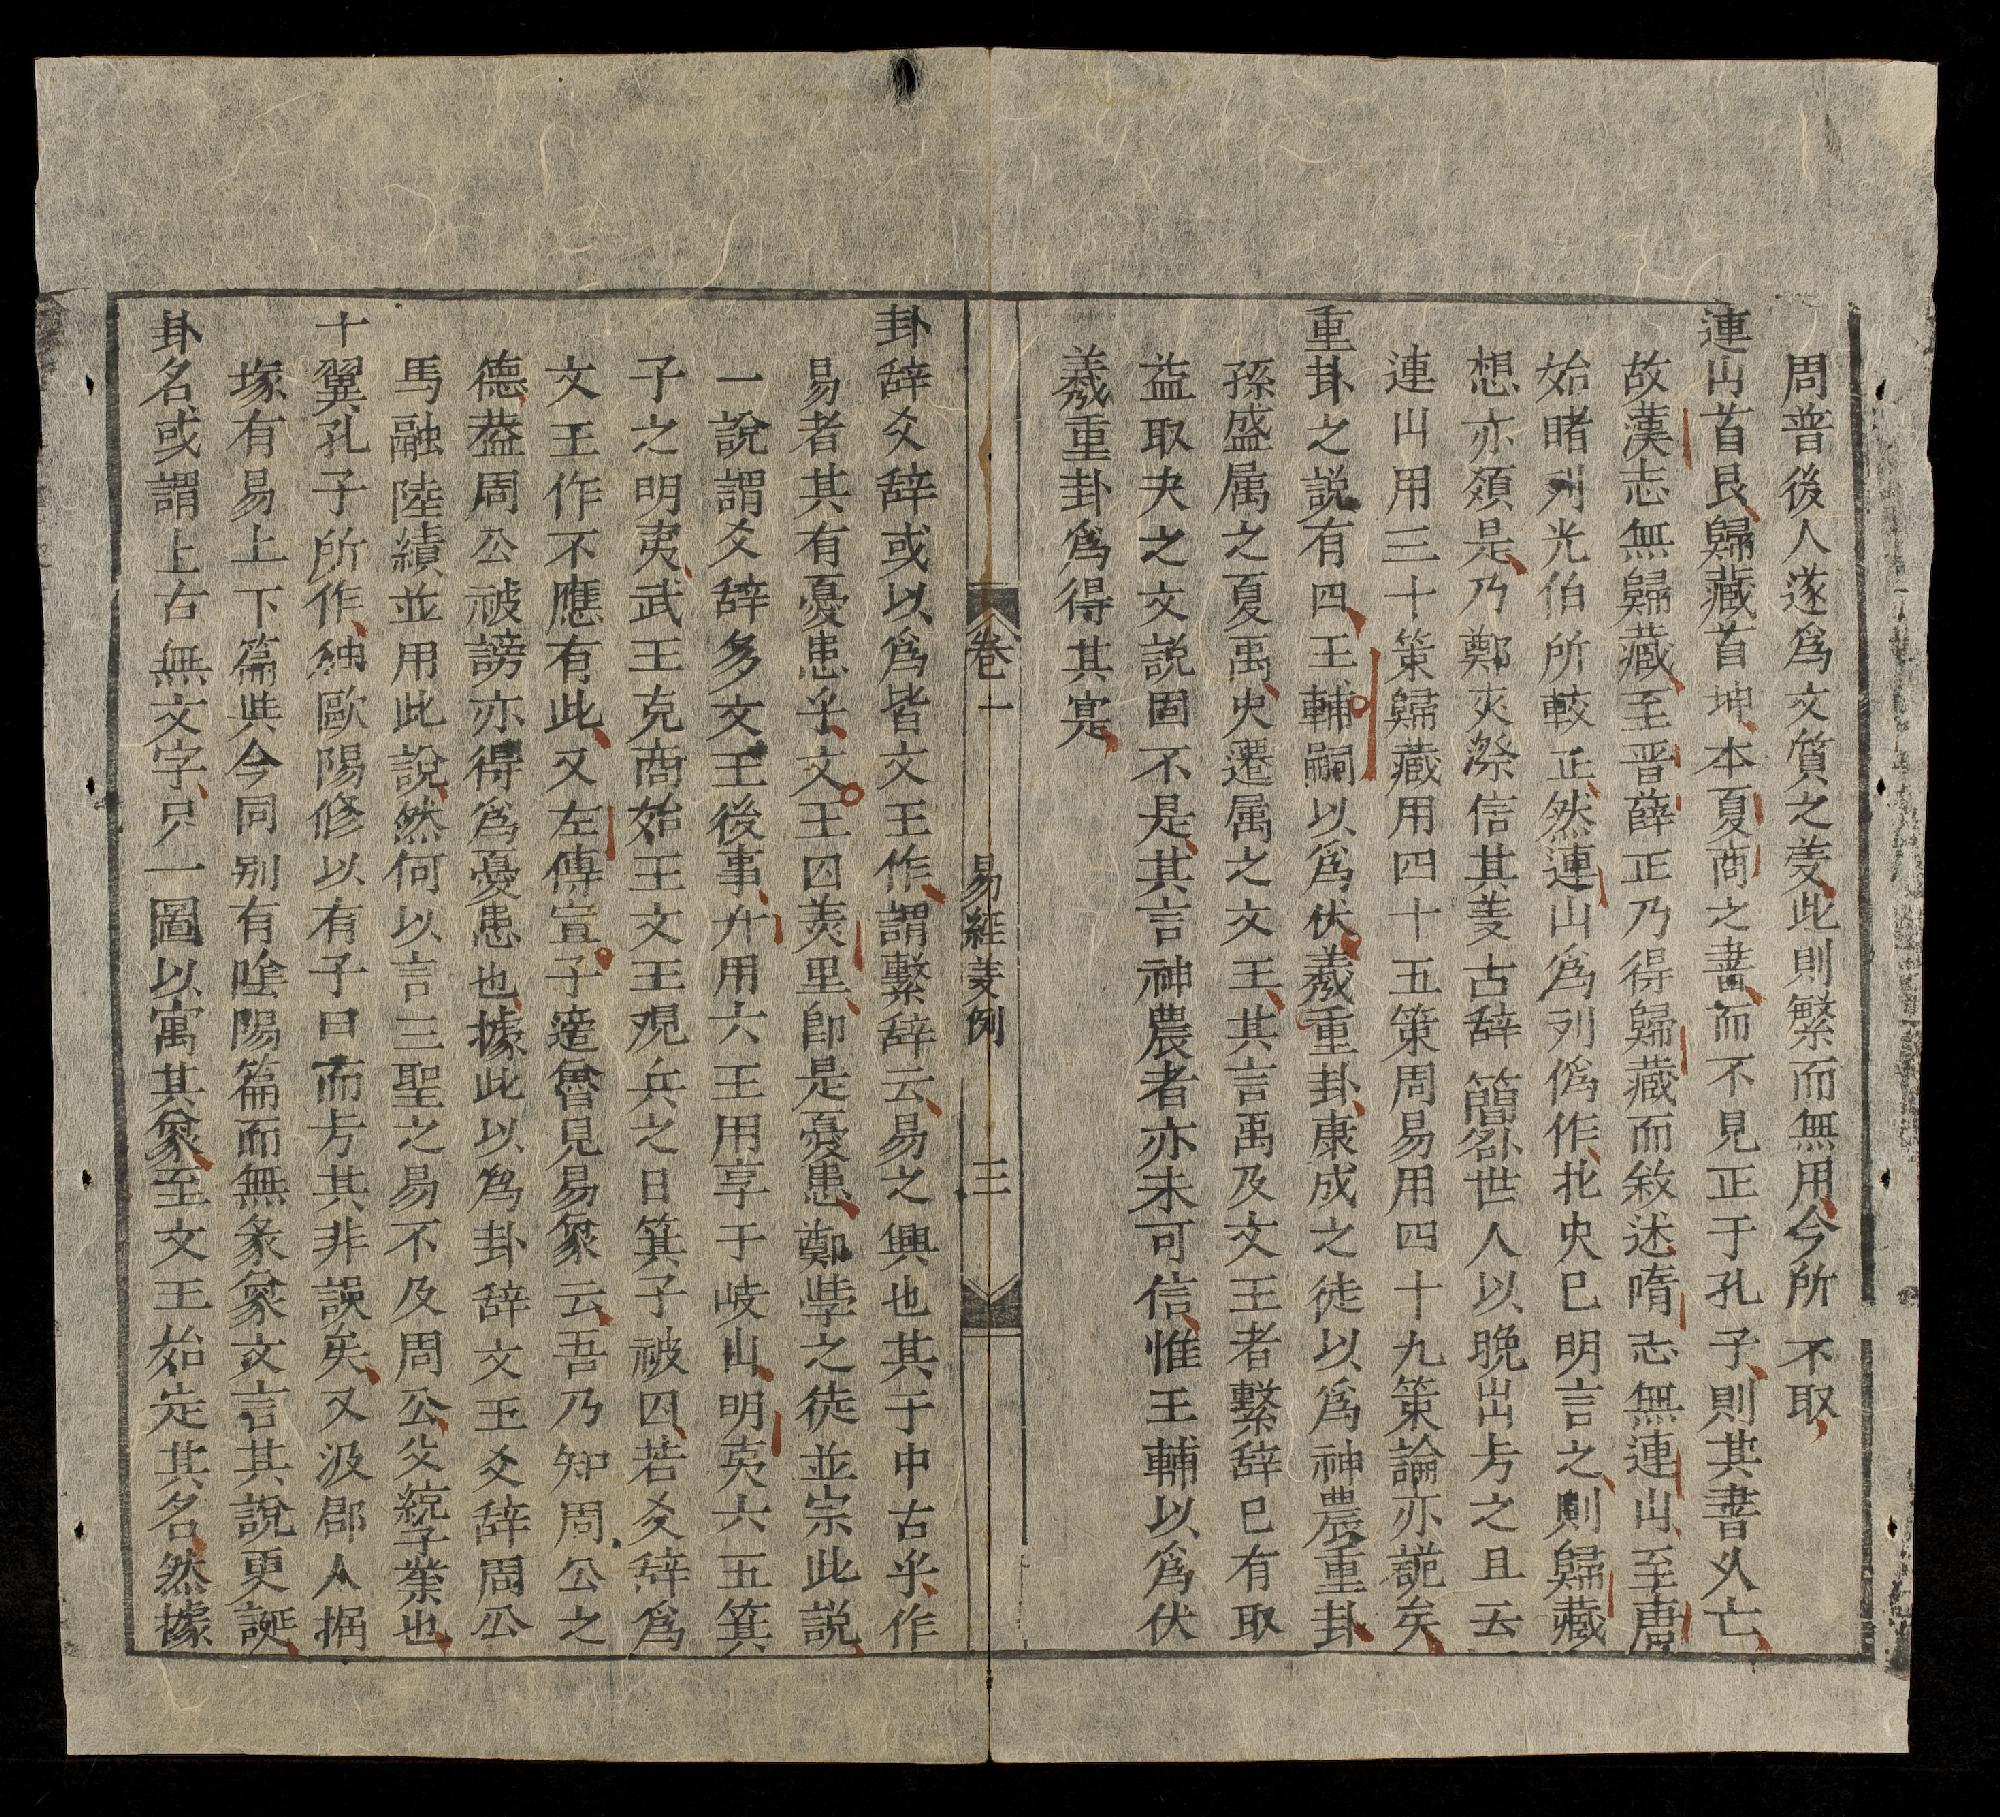 周普後人遂爲文質之羙此則繁而無用今所不取
連山首艮歸藏首坤本夏商之書而不見正于孔子則其書乆亡
故漢志無歸藏至晋薛正乃得歸藏而敘述隋志無連山至唐
始睹列光伯所較正然連山爲列僞作北史已明言之則歸藏
想亦須是乃鄭夾漈信其羙古辞簡畧世人以晚出之且云
連山用三十策歸藏用四十五策周易用四十九策論亦謊矣
重卦之説有四王輔嗣以爲伏羲重卦康成之徒以爲神農重卦
孫盛属之夏禹史遷属之文王其言禹及文王者繫辞已有取
益取夬之文説固不是其言神農者亦未可信惟王輔以爲伏
羲重卦爲得其寔
卷一 易経羙例 三
卦辞爻辞或以爲皆文王作謂繫辞云易之興也其于中古乎作
易者其有憂患乎文王囚羑里即是憂患鄭學之徒並宗此説
一說謂爻辞多文王後事升用六王用享于岐山明夷六五箕
子之明夷武王克商始王文王观兵之日箕子被囚若爻辞爲
文王作不應有此又左傳宣子遊魯見易象云吾乃知周公之
德葢周公被謗亦得爲憂患也據此以爲卦辞文王爻辞周公
馬融陸績並用此說然何以言三聖之易不及周公父統子業也
十翼孔子所作独歐陽修以有子曰而其非誤矣又汲郡人掘
塚有易上下篇與今同别有陰陽篇而無彖象文言其說更誕
卦名或謂上古無文字只一圖以寓其象至文王始定其名然據